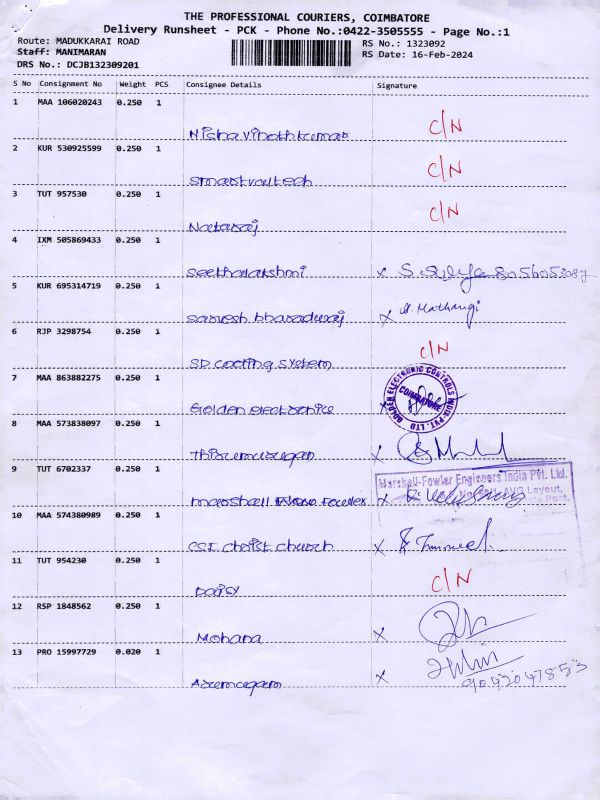 THE PROFESSIONAL COURIERS, COIMBATORE
Delivery Runsheet - PCK - Phone No.:0422-3505555 - Page No.:1
Route: MADUKKARAI ROAD RS No.: 1323092
Staff: MANIMARAN RS Date: 16-Feb-2024
DRS No.: DCJB132309201
S No Consignment No Weight PCS Consignee Details Signature
1 MAA 106020243 0.250 1
Nisha Vinothkumar C/N
2 KUR 530925599 0.250 1
smartvoltech C/N
3 TUT 957530 0.250 1
Nataraj C/N
4 IXM 505869433 0.250 1
seethalakshmi x S.
5 KUR 695314719 0.250 1
sarvesh bharadwaj x Mathangi
6 RJP 3298754 0.250 1
SD coating system C/N
7 MAA 863882275 0.250 1
Golden electronice x GOLDEN ELECTRONIC CONTROLS INDIA PVT. LTD COIMBATORE
8 MAA 573838097 0.250 1
Thirumurugan x
9 TUT 6702337 0.250 1
marshall Fowler x Marshall-Fowler Engineers India Pvt. Ltd.
AVG Layout,
Post,
10 MAA 574380989 0.250 1
CSI christ church x
11 TUT 954230 0.250 1
Daisy C/N
12 RSP 1848562 0.250 1
Mohana x
13 PRO 15997729 0.020 1
Arumugam x
9042047853